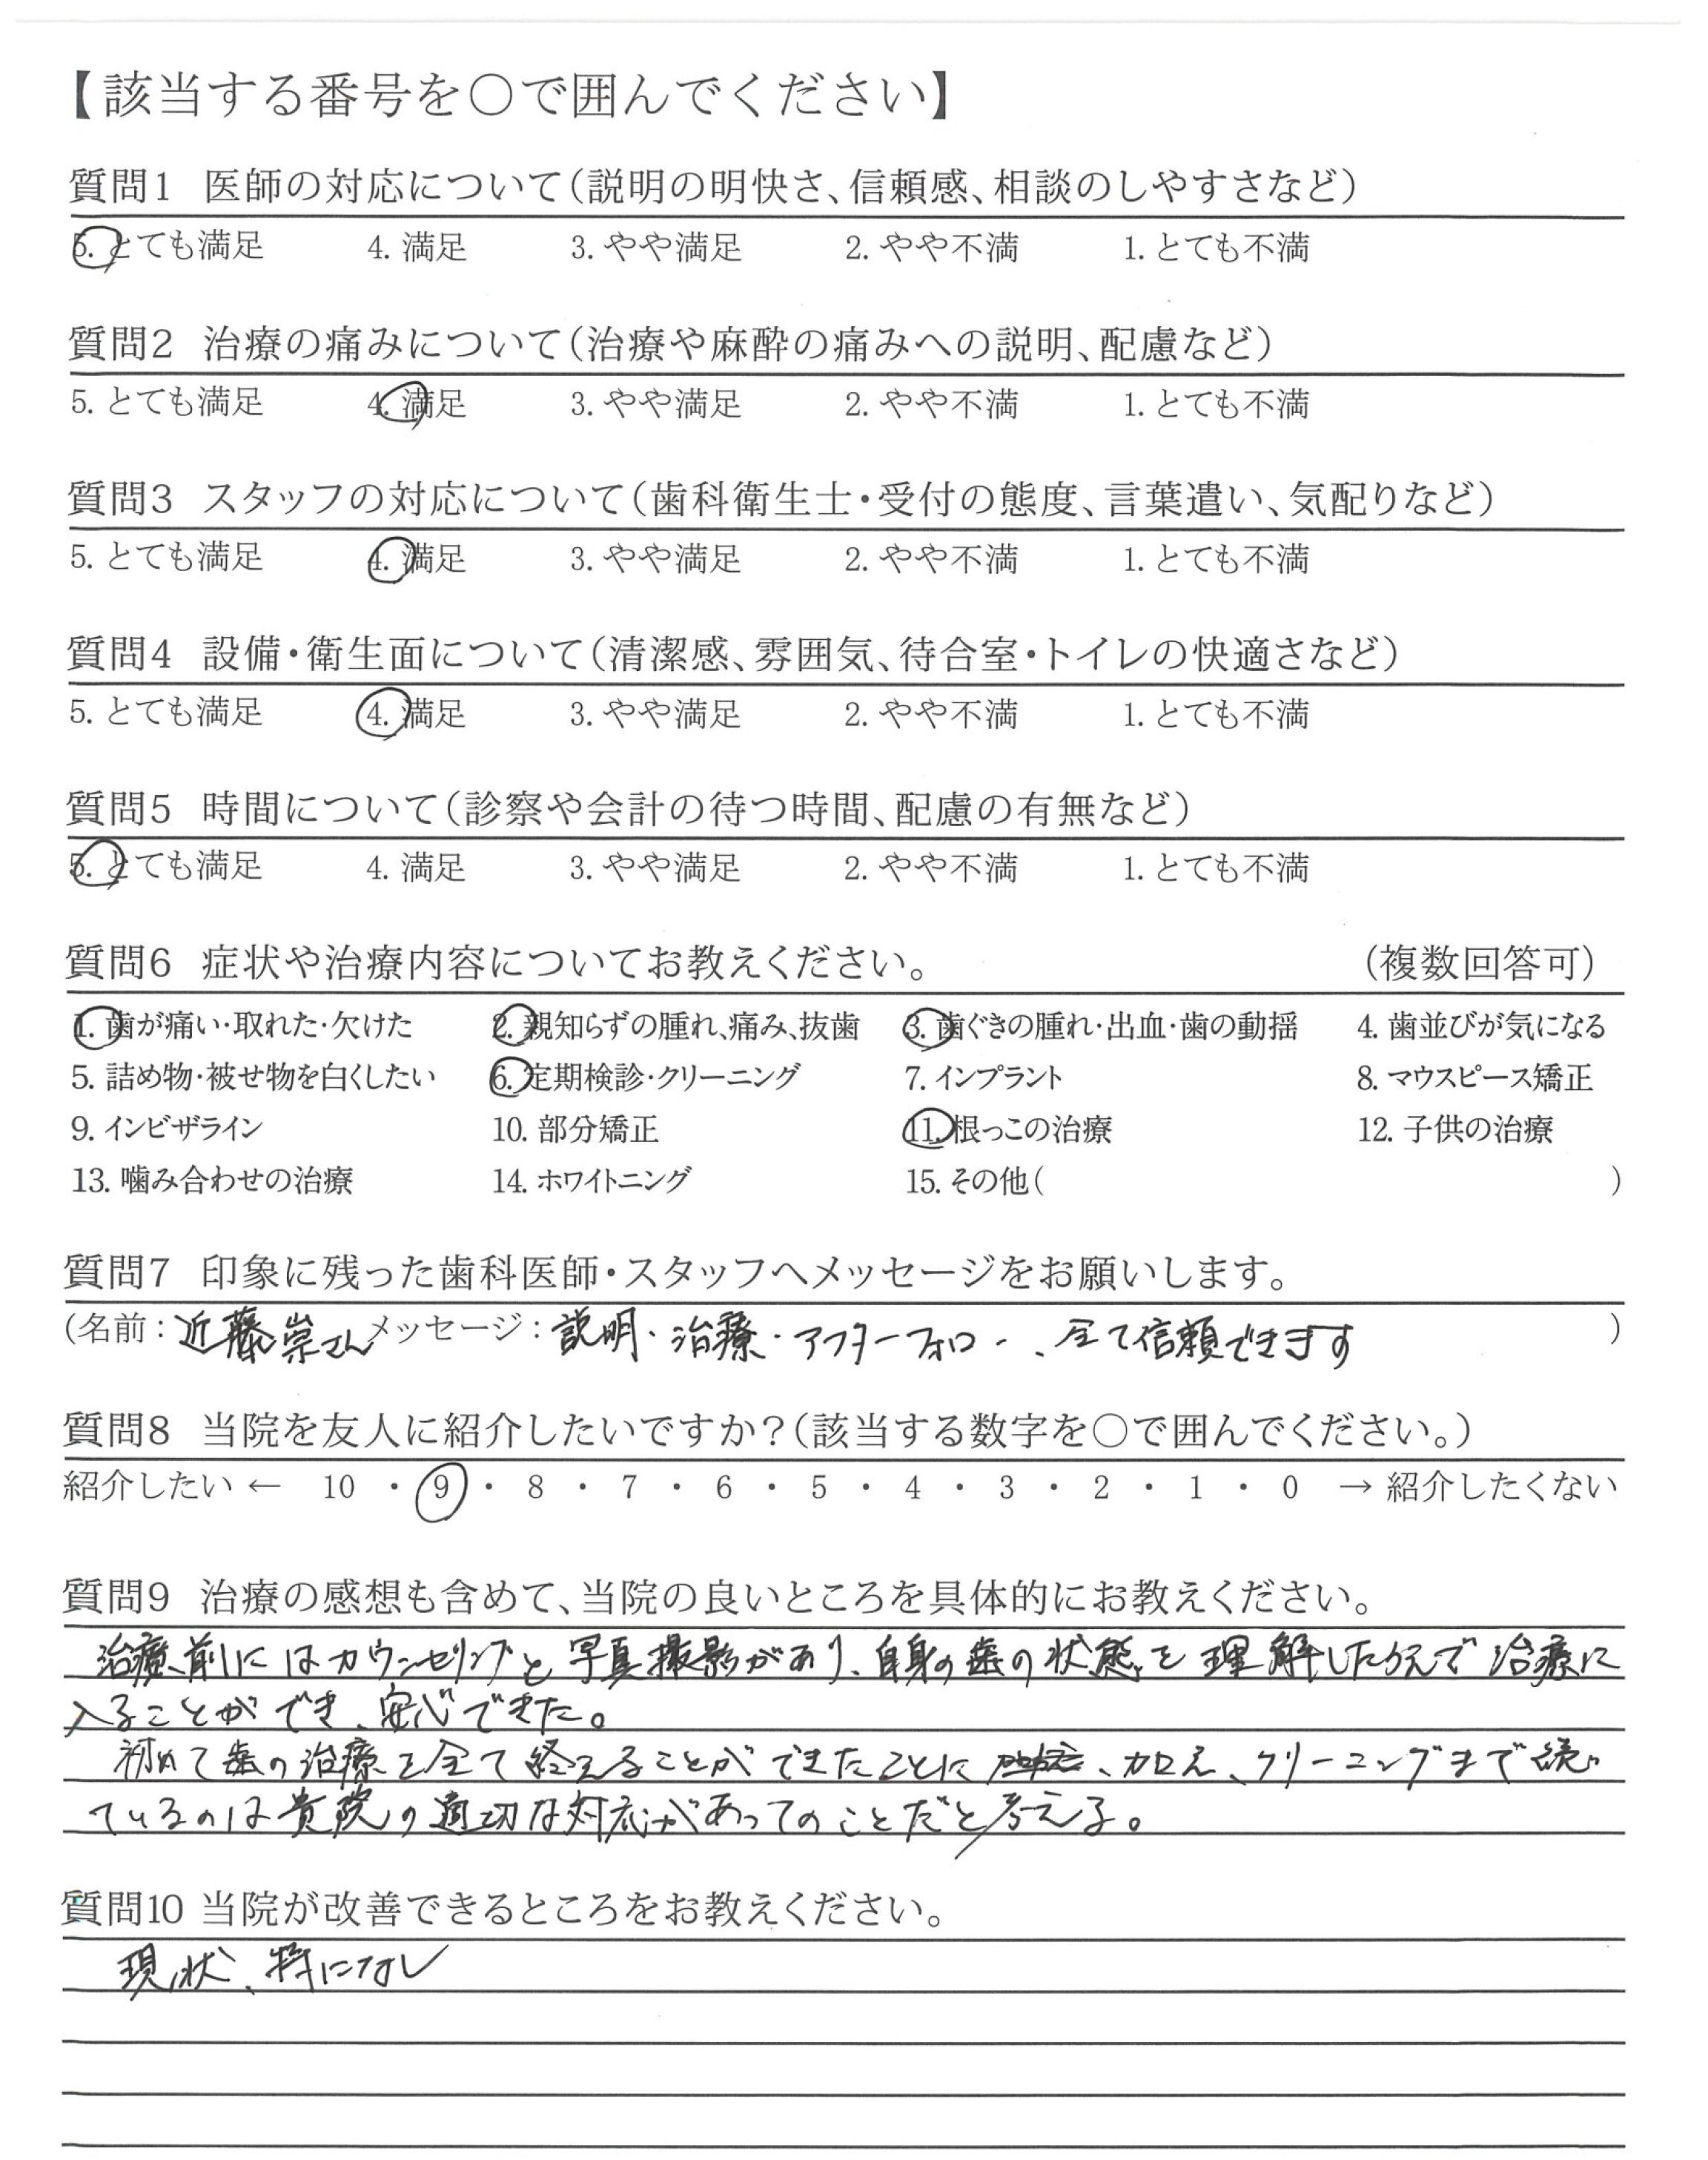 【該当する番号を○で囲んでください】
質問1 医師の対応について(説明の明快さ、信頼感、相談のしやすさなど)
5. とても満足 4. 満足 3. やや満足 2. やや不満 1. とても不満
質問2 治療の痛みについて(治療や麻酔の痛みへの説明、配慮など)
5. とても満足 4. 満足 3. やや満足 2. やや不満 1. とても不満
質問3 スタッフの対応について(歯科衛生士・受付の態度、言葉遣い、気配りなど)
5. とても満足 4. 満足 3. やや満足 2. やや不満 1. とても不満
質問4 設備・衛生面について(清潔感、雰囲気、待合室・トイレの快適さなど)
5. とても満足 4. 満足 3. やや満足 2. やや不満 1. とても不満
質問5 時間について(診察や会計の待つ時間、配慮の有無など)
5. とても満足 4. 満足 3. やや満足 2. やや不満 1. とても不満
質問6 症状や治療内容についてお教えください。 (複数回答可)
1. 歯が痛い・取れた・欠けた 2. 親知らずの腫れ、痛み、抜歯 3. 歯ぐきの腫れ・出血・歯の動揺 4. 歯並びが気になる
5. 詰め物・被せ物を白くしたい 6. 定期検診・クリーニング 7. インプラント 8. マウスピース矯正
9. インビザライン 10. 部分矯正 11. 根っこの治療 12. 子供の治療
13. 噛み合わせの治療 14. ホワイトニング 15. その他( )
質問7 印象に残った歯科医師・スタッフへメッセージをお願いします。
(名前:近藤崇さん メッセージ:説明・治療・アフターフォロー、全て信頼できます )
質問8 当院を友人に紹介したいですか?(該当する数字を○で囲んでください。)
紹介したい ← 10 ・ 9 ・ 8 ・ 7 ・ 6 ・ 5 ・ 4 ・ 3 ・ 2 ・ 1 ・ 0 → 紹介したくない
質問9 治療の感想も含めて、当院の良いところを具体的にお教えください。
治療前にはカウンセリングと写真撮影があり、自身の歯の状態を理解した上で治療に
入ることができ、安心できた。
初めて歯の治療を全て終えることができたことに、加え、クリーニングまで続い
ているのは貴院の適切な対応があってのことだと考える。
質問10 当院が改善できるところをお教えください。
現状、特になし